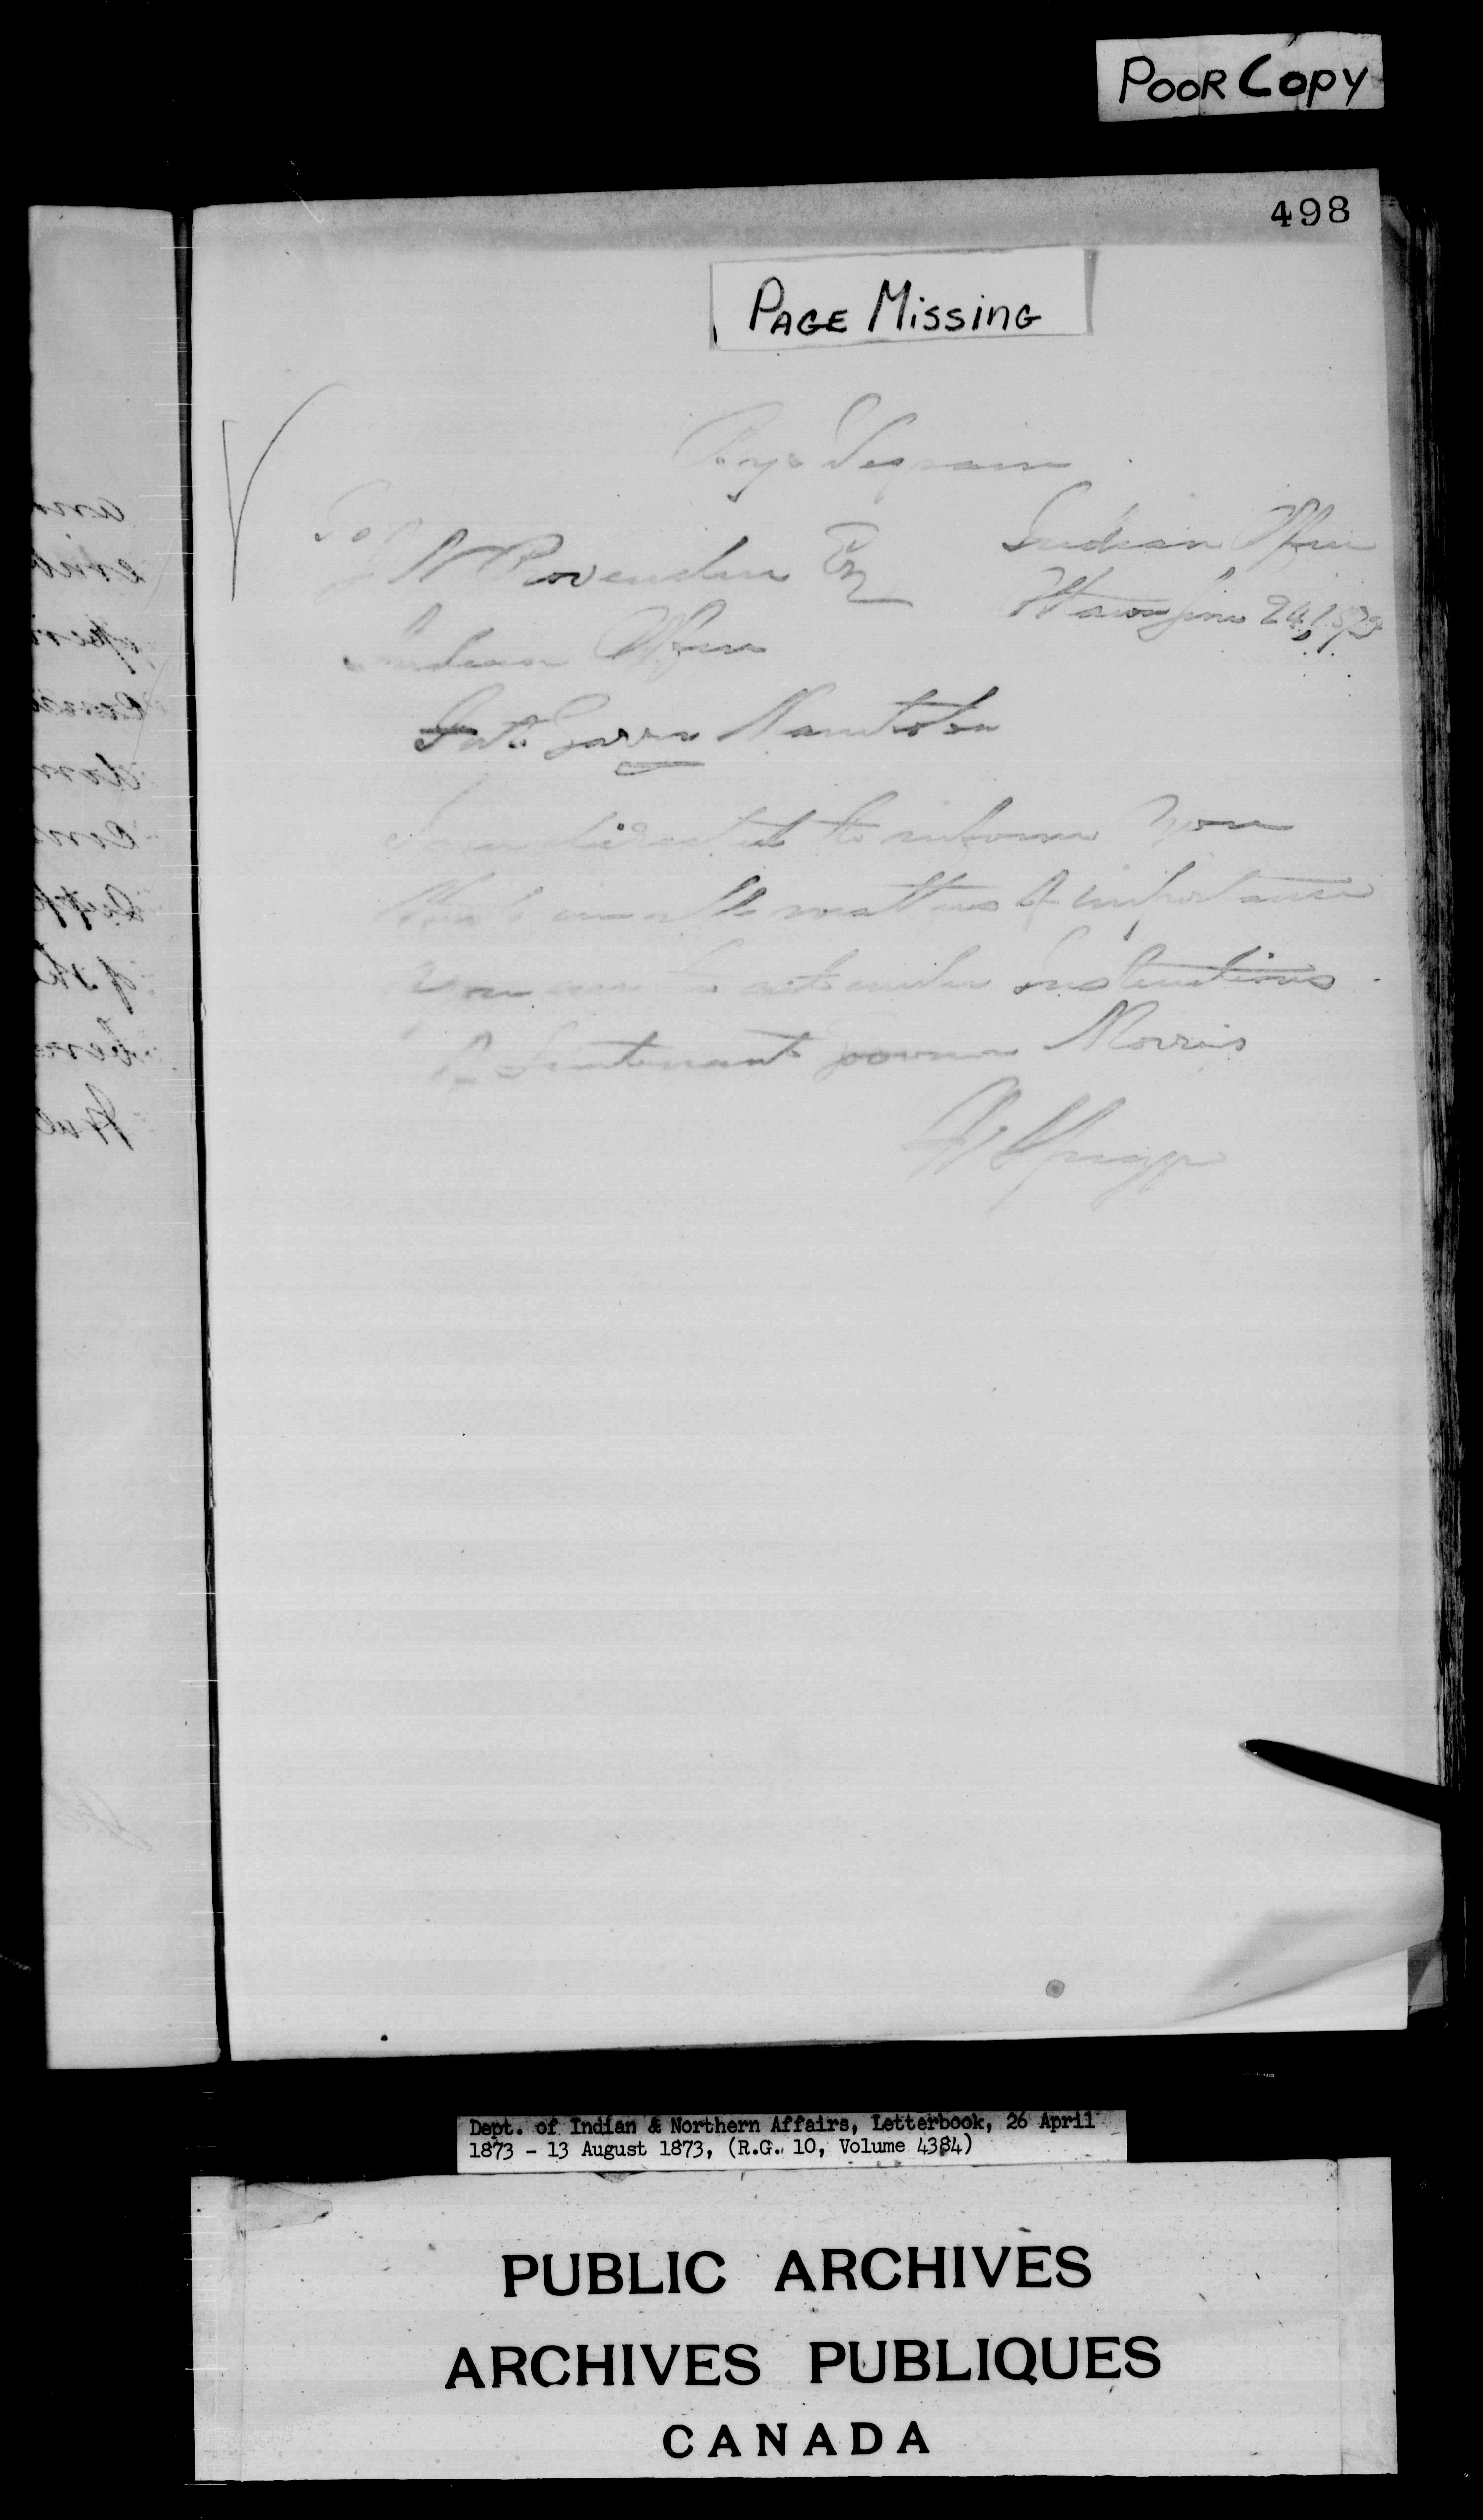 POOR COPY
498
PAGE MISSING
To
J N Provencher Esq
Indian Office
Ottawa June 24, 1873
Indian Office
Fort Garry Manitoba
I am directed to inform you
that in all matters of importance
you are to act under Instructions
of Lieutenant Governor Morris
W Spragge
Dept. of Indian & Northern Affairs, Letterbook, 26 April
1873 - 13 August 1873, (R.G. 10, Volume 4384)
PUBLIC ARCHIVES
ARCHIVES PUBLIQUES
CANADA